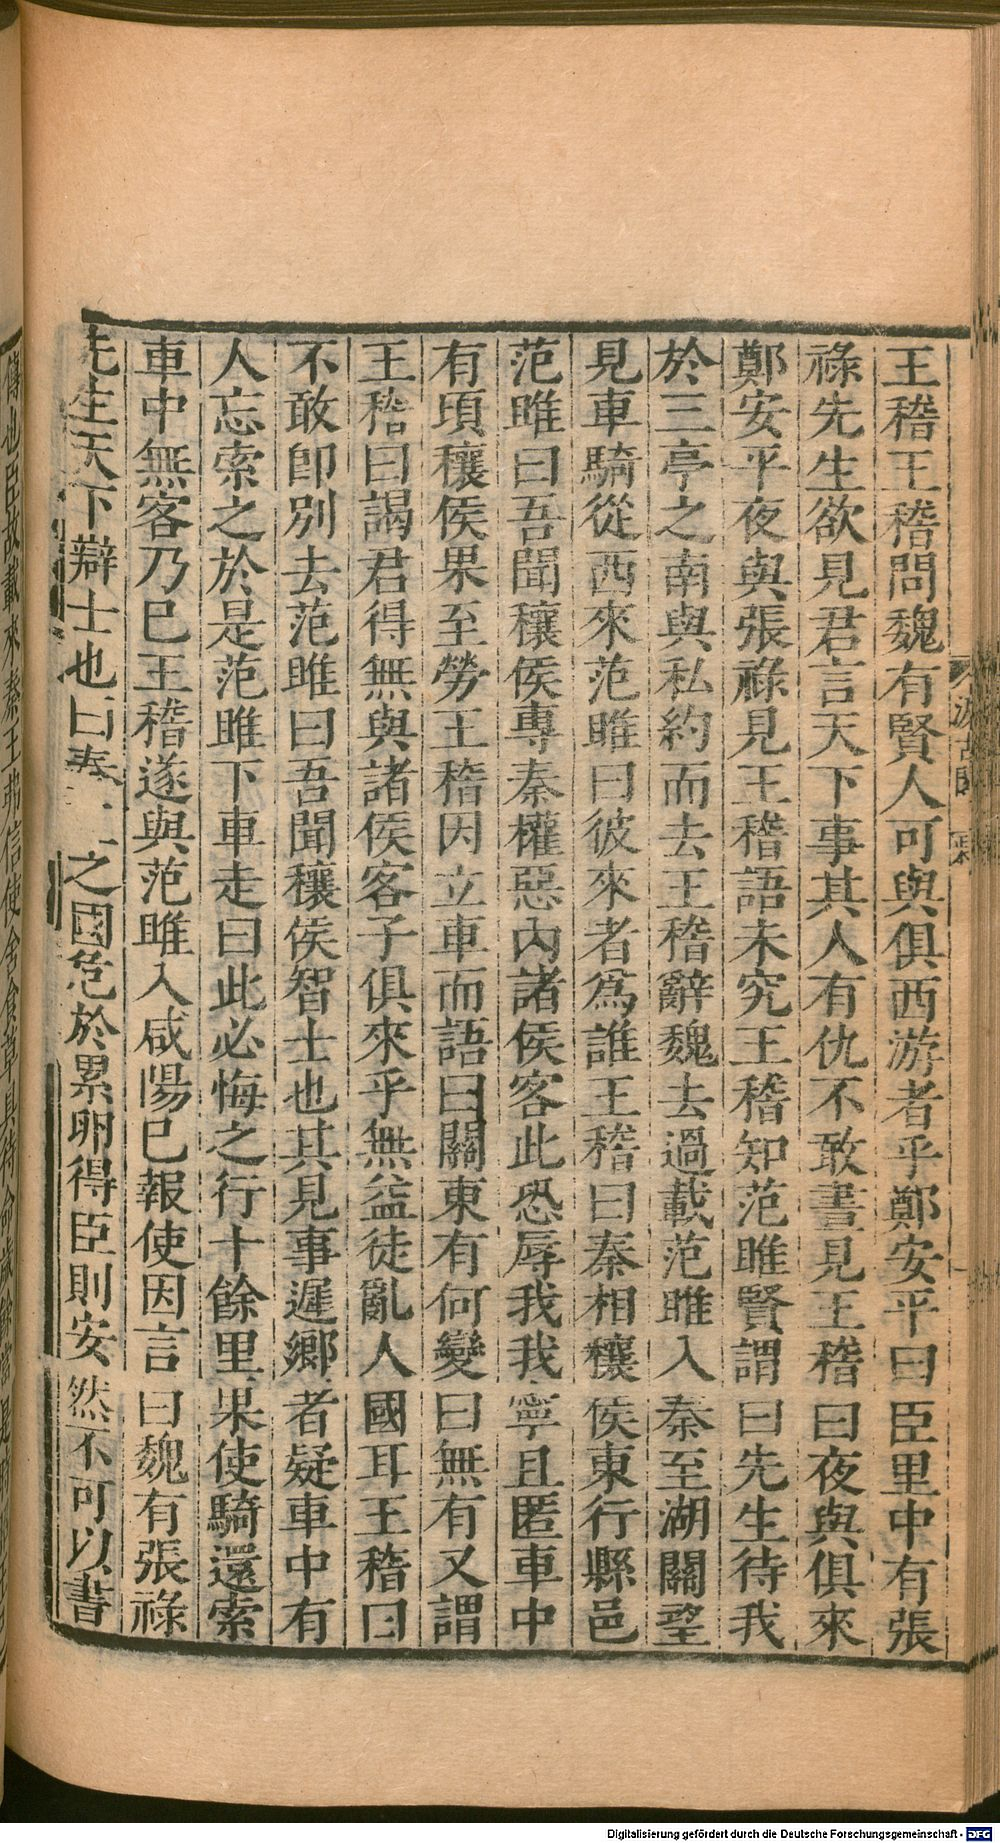 王稽王稽問魏有賢人可與俱西游者乎鄭安平曰臣里中有張
祿先生欲見君言天下事其人有仇不敢晝見王稽曰夜與俱來
鄭安平夜與張祿見王稽語未究王稽知范雎賢謂曰先生待我
於三亭之南與私約而去王稽辭魏去過載范雎入秦至湖關望
見車騎從西來范雎曰彼來者爲誰王稽曰秦相穰侯東行縣邑
范雎曰吾聞穰侯專秦權惡內諸侯客此恐辱我我寧且匿車中
有頃穰侯果至勞王稽因立車而語曰關東有何變曰無有又謂
王稽曰謁君得無與諸侯客子俱來乎無益徒亂人國耳王稽曰
不敢卽別去范雎曰吾聞穰侯智士也其見事遲鄉者疑車中有
人忘索之於是范雎下車走曰此必悔之行十餘里果使騎還索
車中無客乃已王稽遂與范雎入咸陽已報使因言曰魏有張祿
先生天下辯士也曰秦之國危於累卵得臣則安然不可以書
傳也臣故載來秦王弗信使舍食草具待命歲餘當是
Digitalisierung gefördert durch die Deutsche Forschungsgemeinschaft - DFG